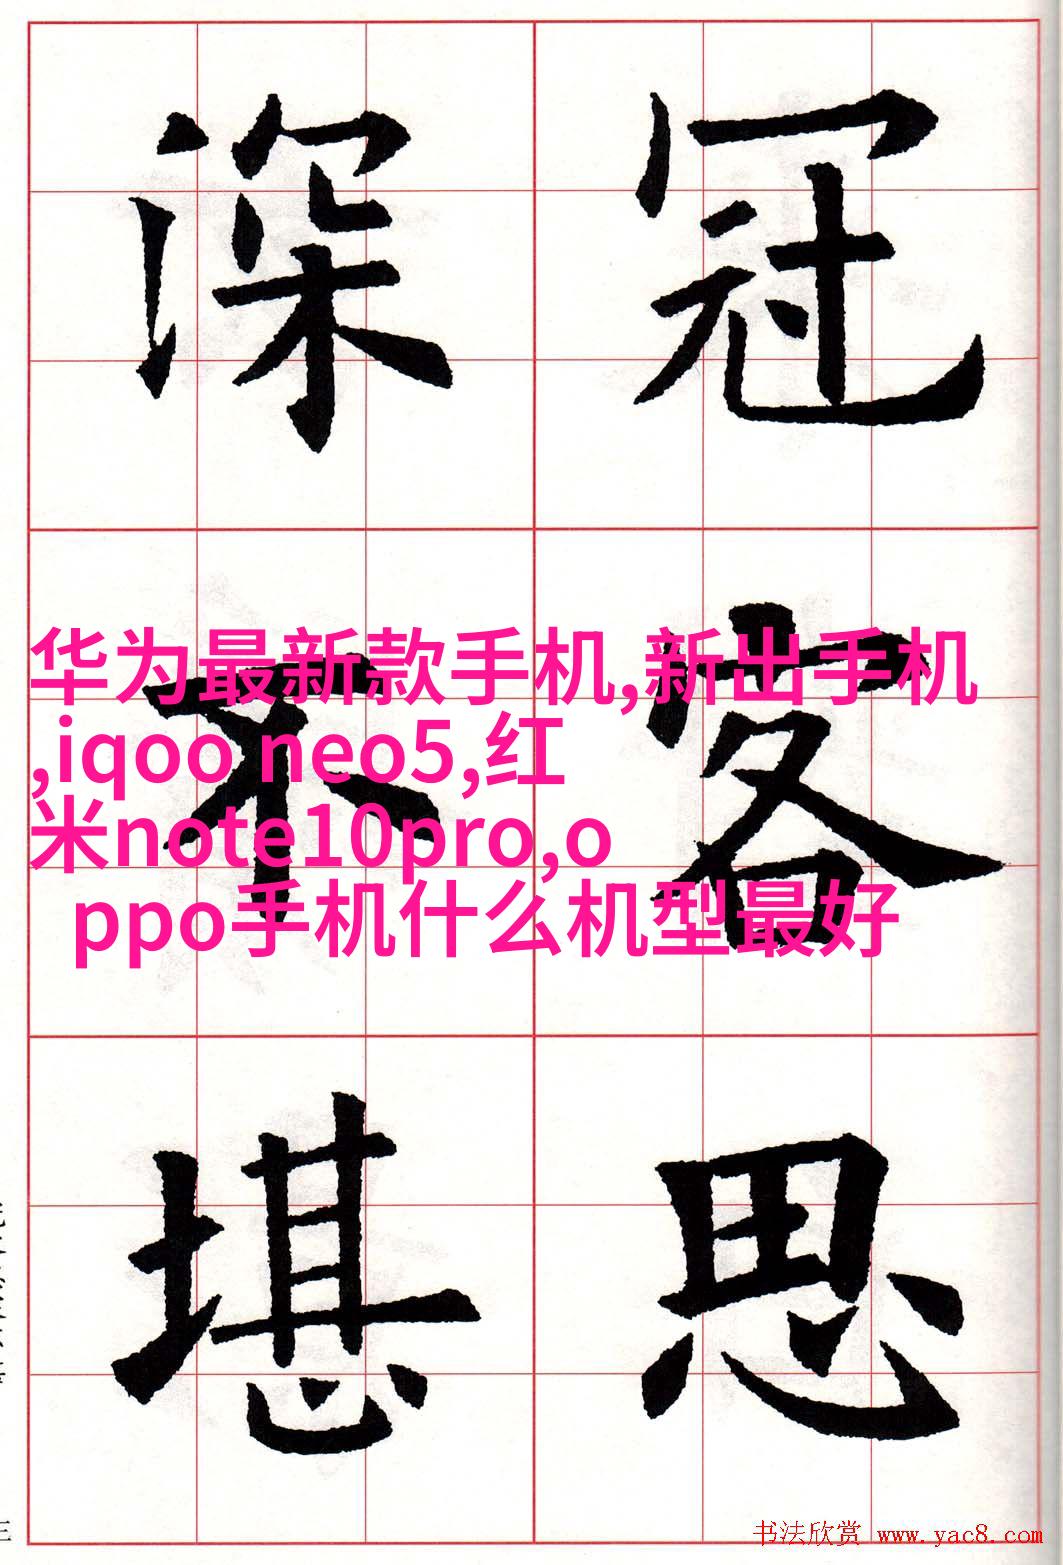 深 冠
不 客
堪 思
华为最新款手机,新出手机
,iqoo neo5,红
米note10pro,o
ppo手机什么机型最好
书法欣赏 www.yac8.com